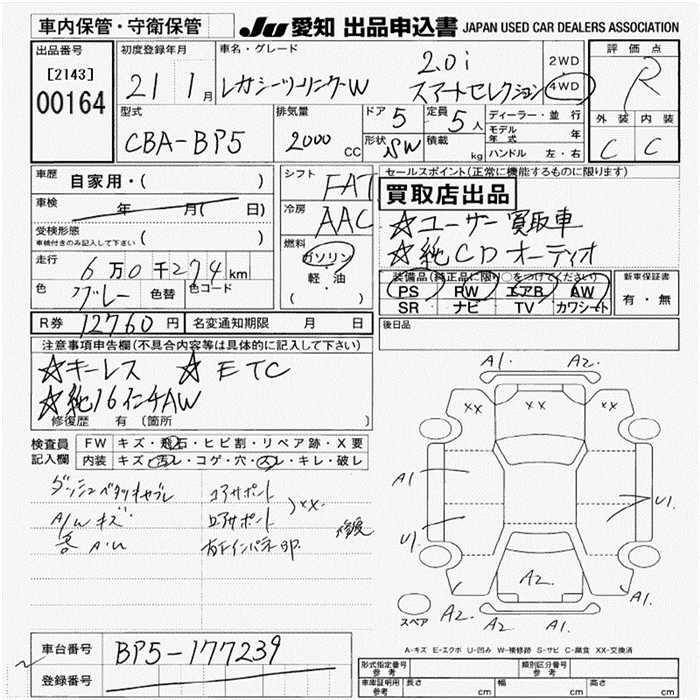 車内保管・守衛保管
JU 愛知 出品申込書 JAPAN USED CAR DEALERS ASSOCIATION
出品番号
[2143]
00164
初度登録年月
21 1月
車名・グレード
レガシーツーリングW
2.0i
スマートセレクション
2WD
4WD
評価点
R
外装 内装
C C
型式
CBA-BP5
排気量
2000 CC
ドア 5
定員 5人
形状 SW
積載 kg
ディーラー・並行
モデル年式 年
ハンドル 左・右
車歴 自家用・( )
車検 年 月( 日)
受検形態
車検付きのみ記入して下さい ( )
走行 6万0千274km
色 グレー 色替 色コード
R券 12760円 名変通知期限 月 日
シフト FAT
冷房 AAC
燃料
ガソリン
軽・油
( )
セールスポイント(正常に機能するものに限ります)
買取店出品
☆ユーザー買取車
☆純CDオーディオ
装備品(純正品に限り○をつけてください)
PS PW エアB AW
SR ナビ TV カワシート
新車保証書
有・無
後日品
注意事項申告欄(不具合内容等は具体的に記入して下さい)
☆キーレス ☆ETC
☆純16インチAW
修復歴 有 〔箇所 〕
検査員
記入欄
FW キズ・飛石・ヒビ割・リペア跡・X要
内装 キズ・汚レ・コゲ・穴・スレ・キレ・破レ
A/Wキズ
コアサポート
ロアサポート
XX.
修復
A1. A2.
XX XX XX
A1
U1.
U1.
A2.
スペア
A2. A2. A1. A1.
A-キズ E-エクボ U-凹み W-補修跡 S-サビ C-腐食 XX-交換済
車台番号 BP5-177239
登録番号
型式指定番号
参考
類別区分番号
参考
車庫証明用
参考
長さ cm 幅 cm 高さ cm